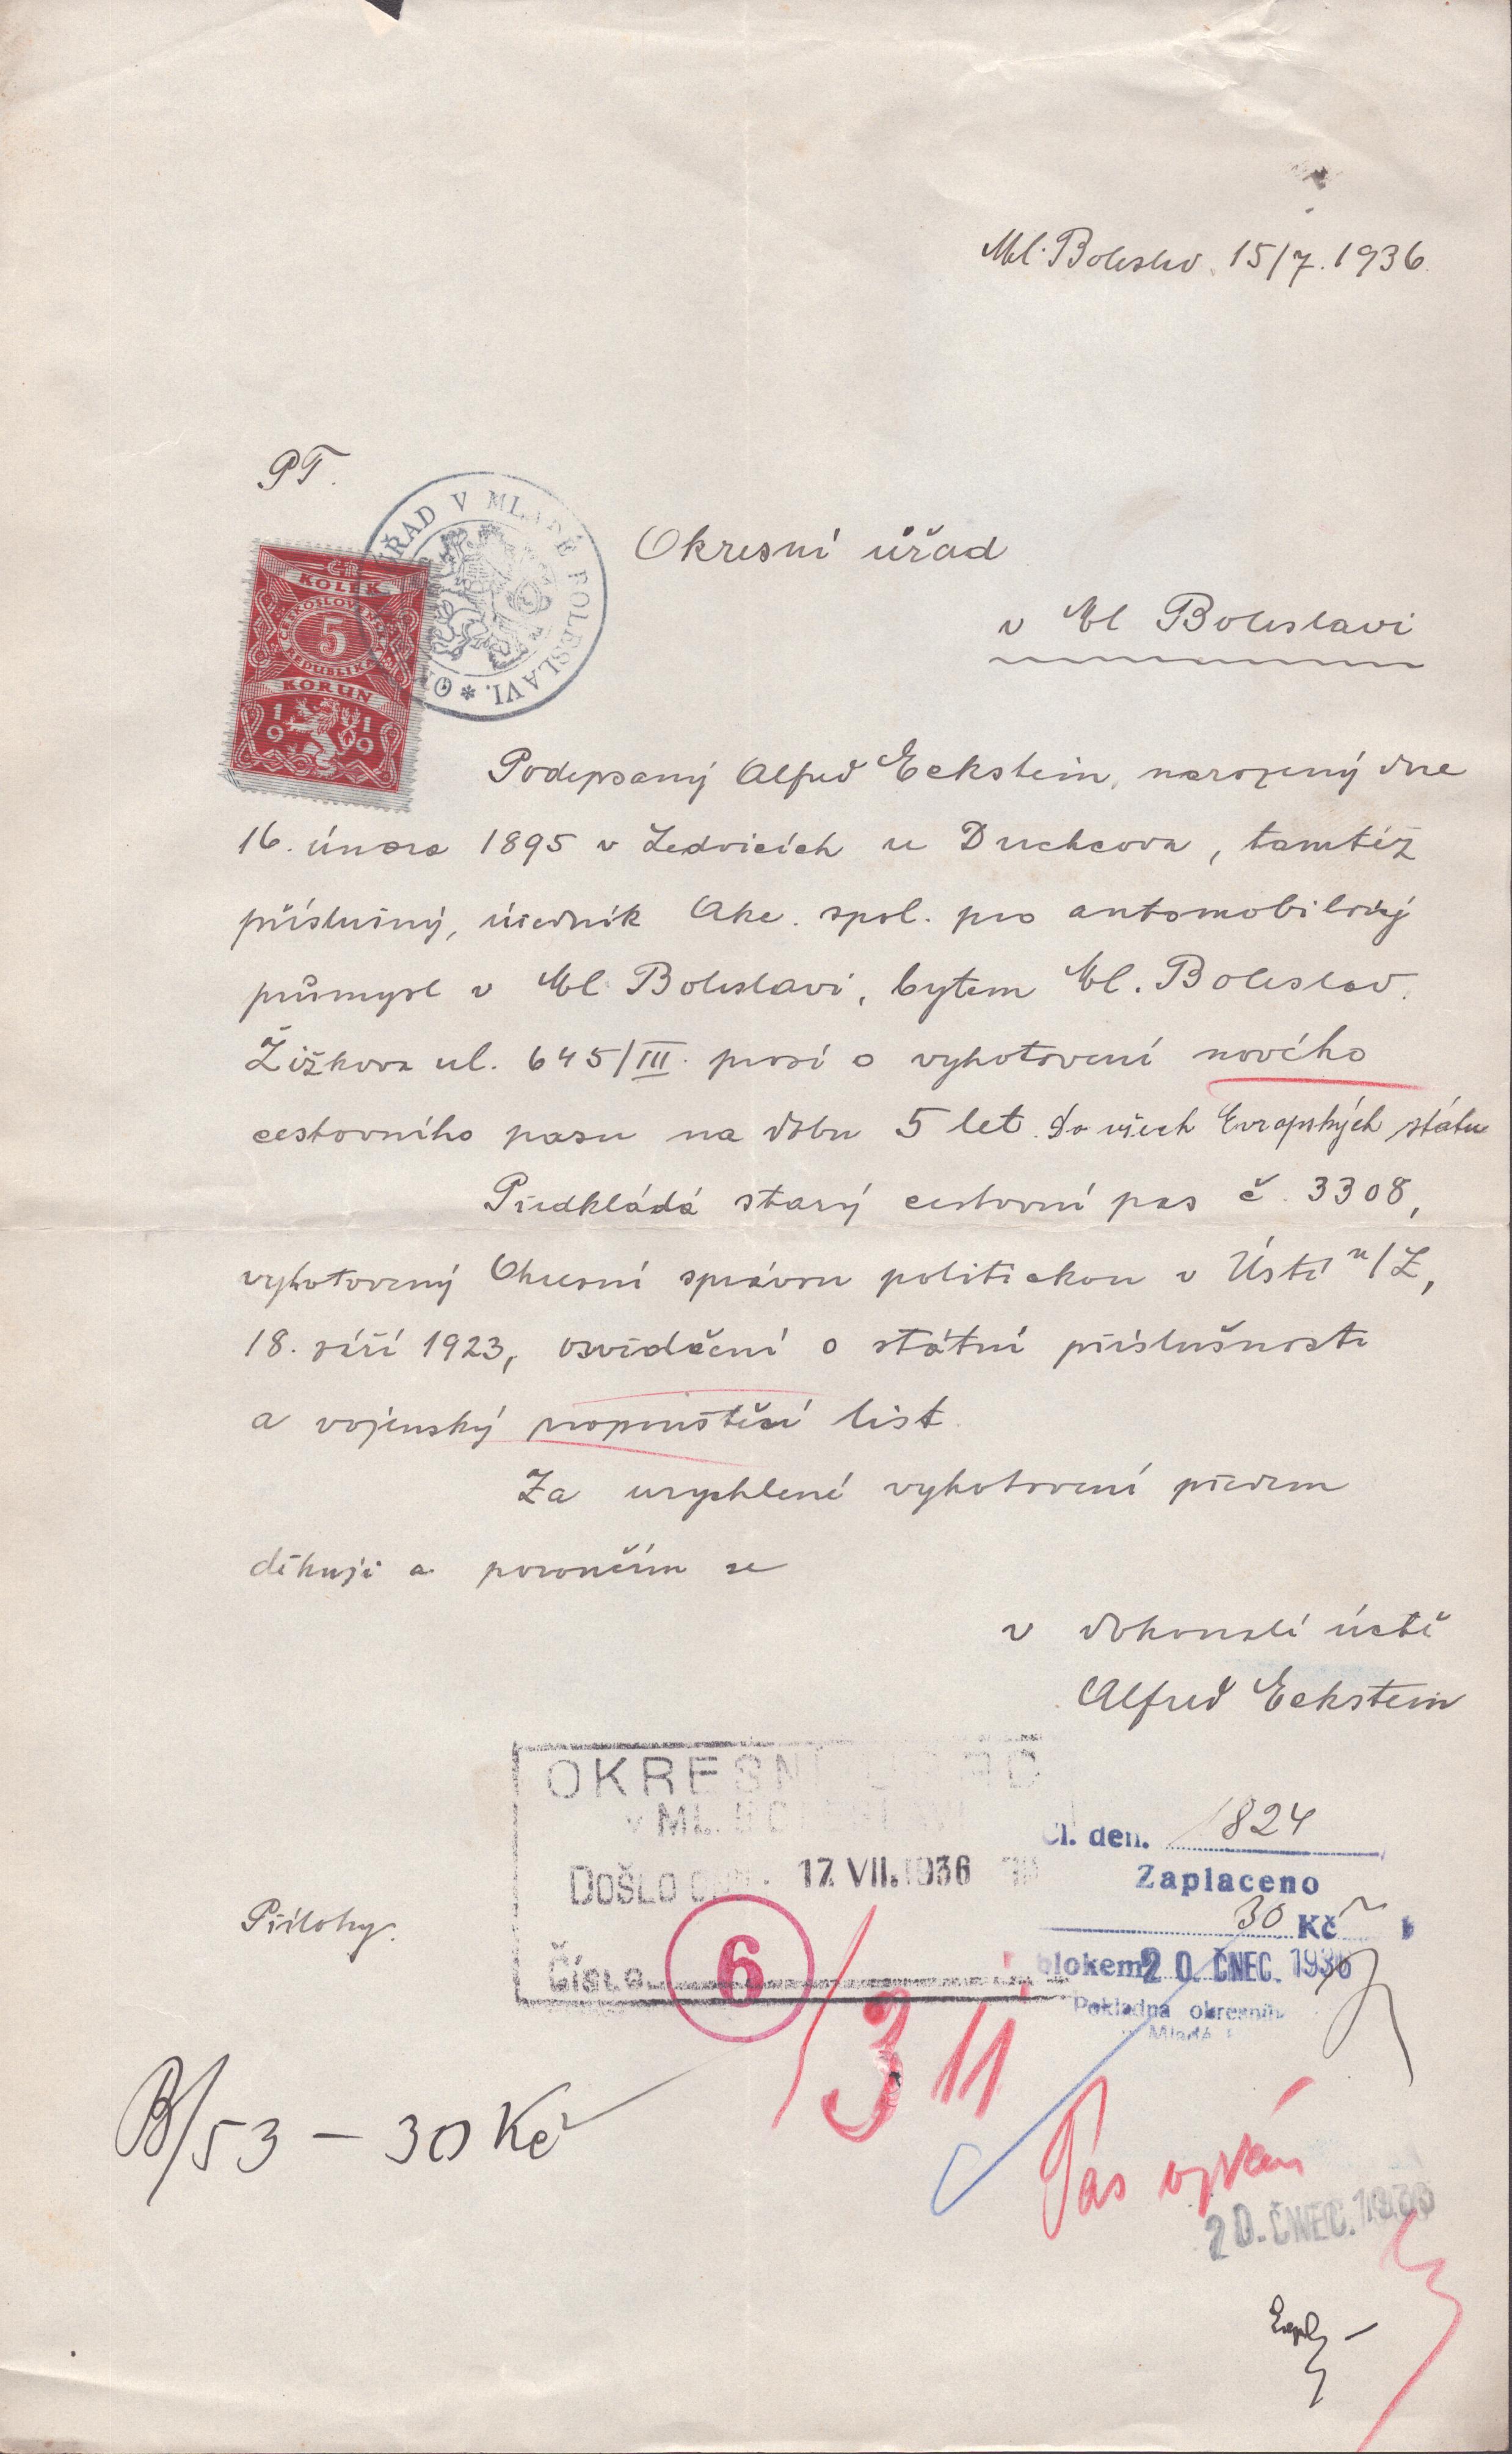 Ml. Boleslav. 15/7. 1936.
PT.
OKRESNÍ ÚŘAD V MLADÉ BOLESLAVI. *
KOLEK
ČESKOSLOVENSKÁ
5
REPUBLIKA
KORUN
1919
Okresní úřad
v Ml Boleslavi
Podepsaný Alfred Eckstein, narozený dne
16. února 1895 v Ledvicích u Duchcova, tamtéž
příslušný, úředník Akc. spol. pro automobilový
průmysl v Ml. Boleslavi, bytem Ml. Boleslav.
Žižkova ul. 645/III. prosí o vyhotovení nového
cestovního pasu na dobu 5 let. do všech Evropských států
Předkládá starý cestovní pas č. 3308,
vyhotovený Okresní správou politickou v Ústí n/L,
18. září 1923, osvědčení o státní příslušnosti
a vojenský propouštěcí list.
Za urychlené vyhotovení předem
děkuji a poroučím se
v dokonalé úctě
Alfred Eckstein
OKRESNÍ ÚŘAD
v ML. BOLESLAVI
DOŠLO DNE: 17. VII. 1936
Číslo
6
Čl. den. 1824
Zaplaceno
30 Kč
blokem 20. ČNEC. 1936
Pokladna okresního
v Mladé
Přílohy.
/311
B/53 – 30 Kč
Pas vydán
20. ČNEC. 1936